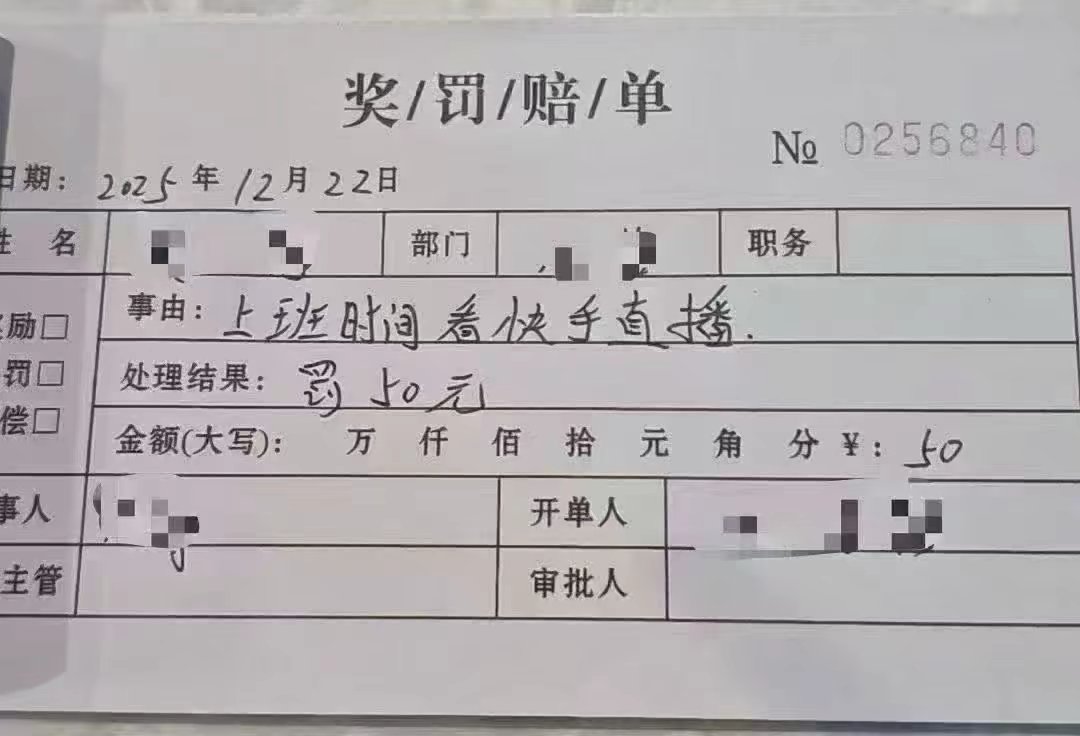 奖/罚/赔/单
№ 0256840
日期: 2025年12月22日
姓 名 部门 职务
事由: 上班时间看快手直播.
奖励□
处理结果: 罚50元
罚□
偿□
金额(大写): 万 仟 佰 拾 元 角 分 ¥: 50
事人 开单人
主管 审批人